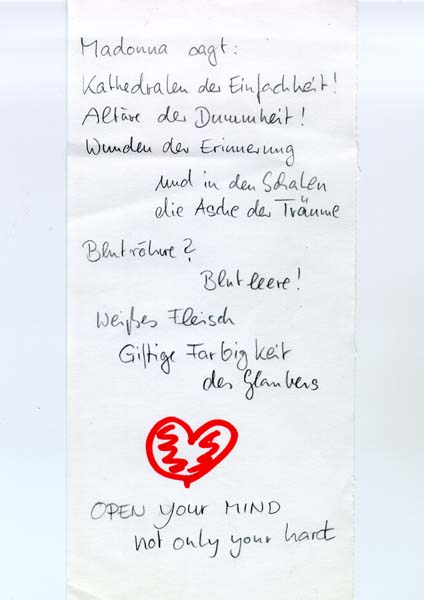 Madonna sagt:
Kathedralen der Einfachheit!
Altäre der Dummheit!
Wunden der Erinnerung
und in den Schalen
die Asche der Träume
Blutröhre?
Blutleere!
Weißes Fleisch
Giftige Farbigkeit
des Glaubens
OPEN your MIND
not only your